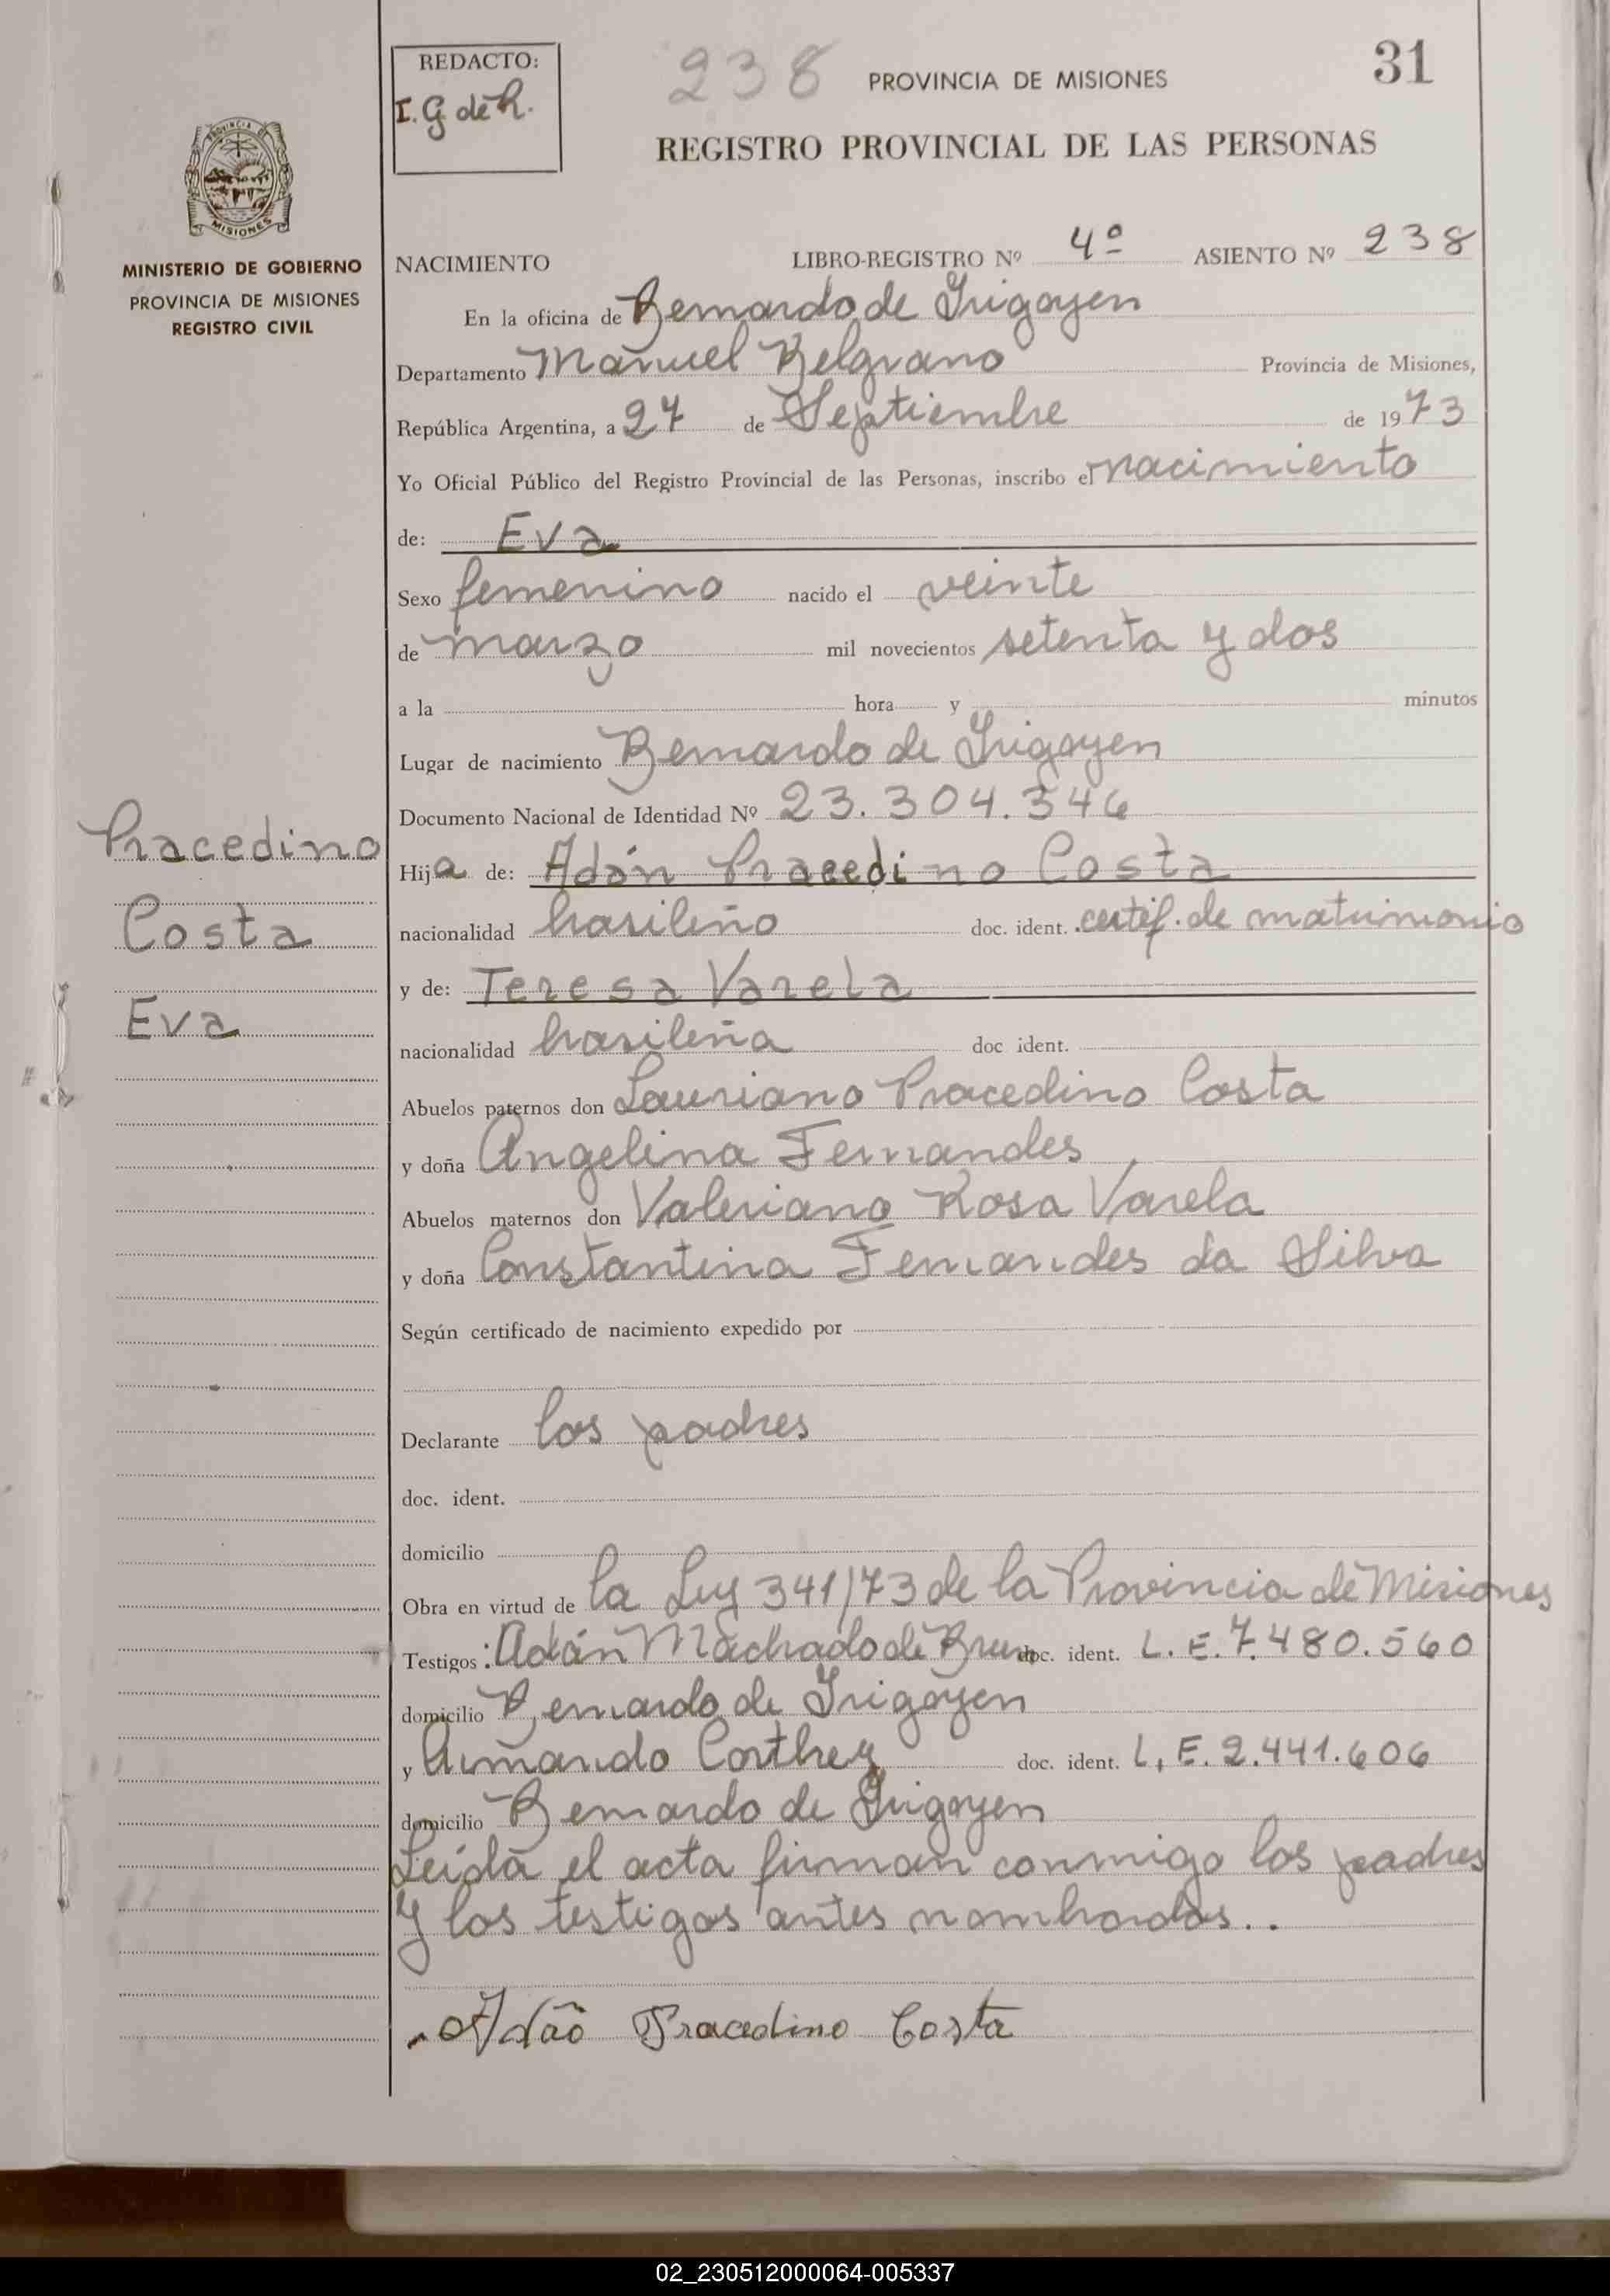 REDACTO:
I. G de R.
238
PROVINCIA DE MISIONES
31
REGISTRO PROVINCIAL DE LAS PERSONAS
PROVINCIA DE
MISIONES
MINISTERIO DE GOBIERNO
PROVINCIA DE MISIONES
REGISTRO CIVIL
NACIMIENTO LIBRO-REGISTRO Nº 4º ASIENTO Nº 238
En la oficina de Bernardo de Irigoyen
Departamento Manuel Belgrano Provincia de Misiones,
República Argentina, a 27 de Septiembre de 1973
Yo Oficial Público del Registro Provincial de las Personas, inscribo el nacimiento
de: Eva
Sexo femenino nacido el veinte
de marzo mil novecientos setenta y dos
a la hora y minutos
Lugar de nacimiento Bernardo de Irigoyen
Documento Nacional de Identidad Nº 23.304.346
Pracedino
Costa
Eva
Hija de: Adán Pracedino Costa
nacionalidad brasileño doc. ident. certif. de matrimonio
y de: Teresa Varela
nacionalidad brasileña doc ident.
Abuelos paternos don Lauriano Pracedino Costa
y doña Angelina Fernandes
Abuelos maternos don Valeriano Rosa Varela
y doña Constantina Fernandes da Silva
Según certificado de nacimiento expedido por
Declarante los padres
doc. ident.
domicilio
Obra en virtud de la Ley 341/73 de la Provincia de Misiones
Testigos: Adán Machado de Brum doc. ident. L. E. 7.480.560
domicilio Bernardo de Irigoyen
y Armando Corthey doc. ident. L. E. 2.441.606
domicilio Bernardo de Irigoyen
Leída el acta firman conmigo los padres
y los testigos antes nombrados..
Adão Pracedino Costa
02_230512000064-005337